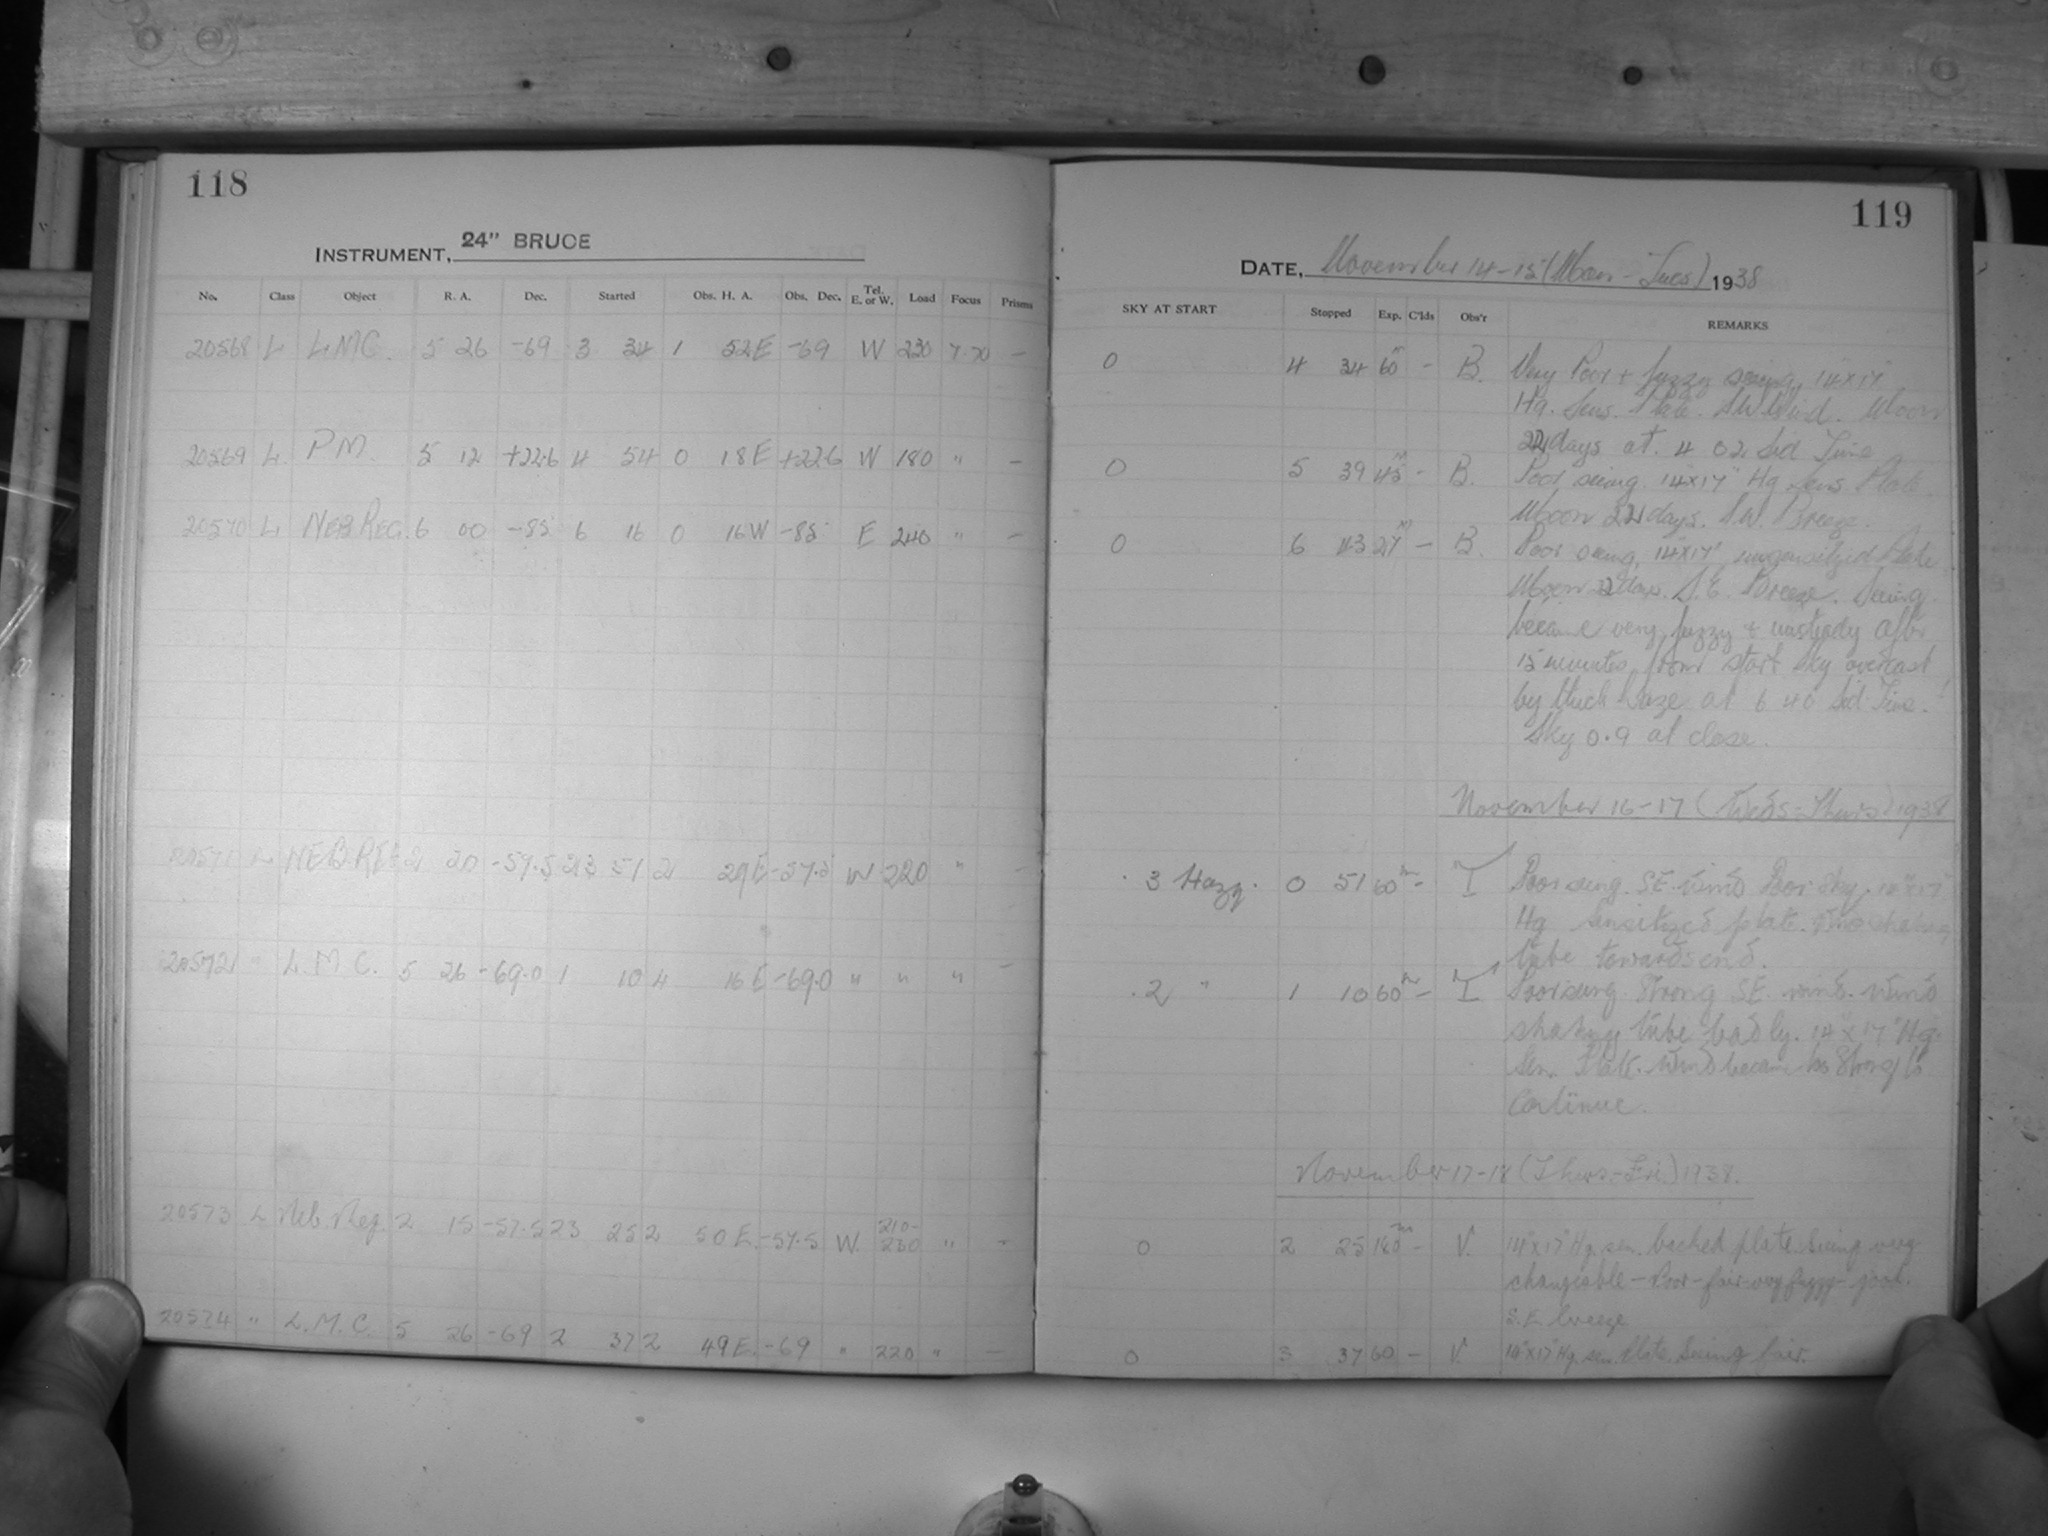 118
INSTRUMENT, 24" BRUCE
No. Class Object R. A. Dec. Started Obs. H. A. Obs. Dec. Tel. E. or W. Load Focus Prisms
20568 L LMC. 5 26 -69 3 34 1 52E -69 W 230 7.70 -
20569 L. PM. 5 12 +22.6 4 54 0 18E +22.6 W 180 " -
20570 L NEB REG. 6 00 -85 6 16 0 16W -85 E 240 " -
20571 L NEB REG 2 20 -57.5 23 51 2 29E -57.5 W 220 " -
20572 " L.M.C. 5 26 -69.0 1 10 4 16E -69.0 " " " -
20573 L Neb. Reg. 2 15 -57.5 23 25 2 50E. -57.5 W. 210-230 " -
20574 " L.M.C. 5 26 -69 2 37 2 49E. -69 " 220 " -
119
DATE, November 14-15 (Mon-Tues) 1938
SKY AT START Stopped Exp. C'lds Obs'r REMARKS
0 4 34 60m - B. Very Poor + fuzzy seeing, 14"x17"
Hg. Sens. Plate. SW Wind. Moon
22 days at. 4 02 Sid Time
0 5 39 45m - B. Poor seeing. 14x17" Hg Sens. Plate.
Moon 22 days. SW. Breeze.
0 6 43 27m - B. Poor seeing, 14"x17" unsensitized Plate
Moon 22 days. S.E. Breeze. Seeing
became very fuzzy + unsteady after
15 minutes from start Sky overcast
by thick haze at 6 40 Sid Time.
Sky 0.9 at close.
November 16-17 (Weds-Thurs) 1938
.3 Hazy. 0 51 60m - T Poor seeing. SE. wind Poor sky. 14"x17"
Hg sensitized plate. Wind shaking
tube towards end.
.2 " 1 10 60m - T Poor seeing. Strong SE. wind. Wind
shaking tube badly. 14"x17" Hg.
Sen. Plate. Wind became too strong to
continue.
November 17-18 (Thurs-Fri.) 1938.
0 2 25 180m - V. 14"x17" Hg. sen. backed plate. Seeing very
changeable - Poor - fair - very fuzzy - poor.
S.E. breeze
0 3 37 60 - V. 14"x17" Hg. sen. plate. Seeing fair.